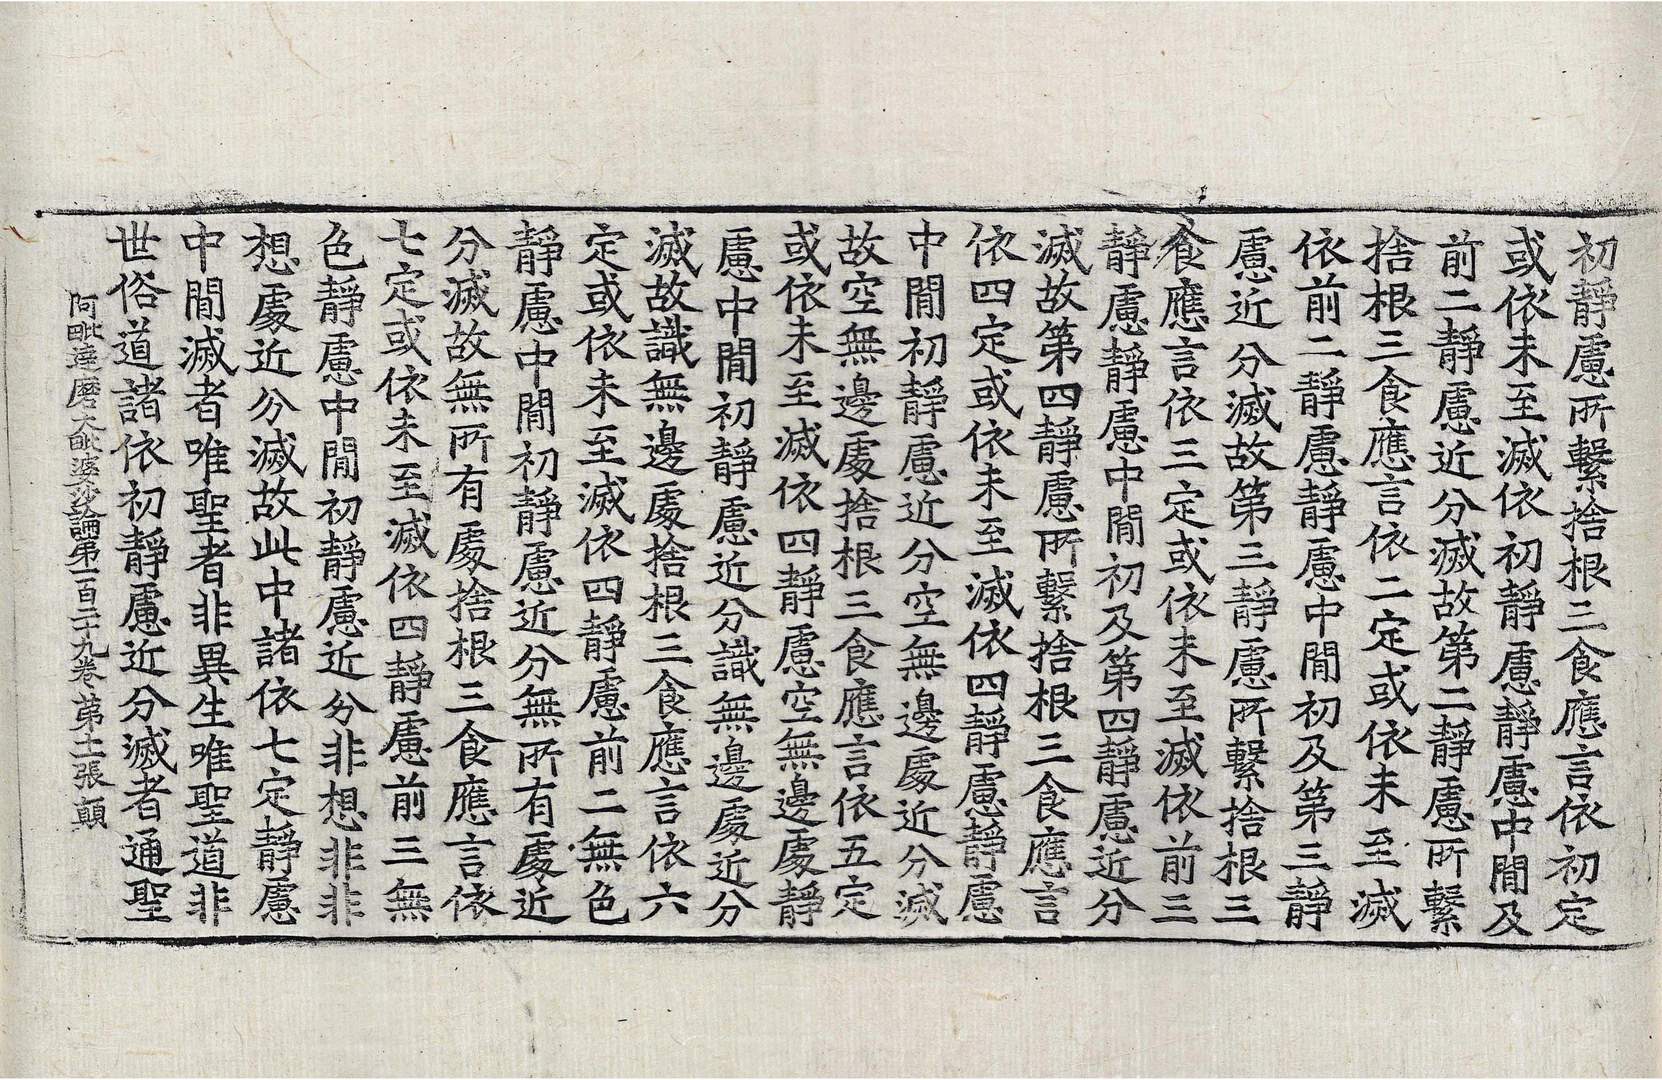 初靜慮所繫捨根三食應言依初定
或依未至滅依初靜慮靜慮中閒及
前二靜慮近分滅故第二靜慮所繫
捨根三食應言依二定或依未至滅
依前二靜慮靜慮中閒初及第三靜
慮近分滅故第三靜慮所繫捨根三
食應言依三定或依未至滅依前三
靜慮靜慮中閒初及第四靜慮近分
滅故第四靜慮所繫捨根三食應言
依四定或依未至滅依四靜慮靜慮
中閒初靜慮近分空無邊處近分滅
故空無邊處捨根三食應言依五定
或依未至滅依四靜慮空無邊處靜
慮中閒初靜慮近分識無邊處近分
滅故識無邊處捨根三食應言依六
定或依未至滅依四靜慮前二無色
靜慮中閒初靜慮近分無所有處近
分滅故無所有處捨根三食應言依
七定或依未至滅依四靜慮前三無
色靜慮中閒初靜慮近分非想非非
想處近分滅故此中諸依七定靜慮
中閒滅者唯聖者非異生唯聖道非
世俗道諸依初靜慮近分滅者通聖
阿毗達磨大毗婆沙論第一百二十九卷 第十二張 顛